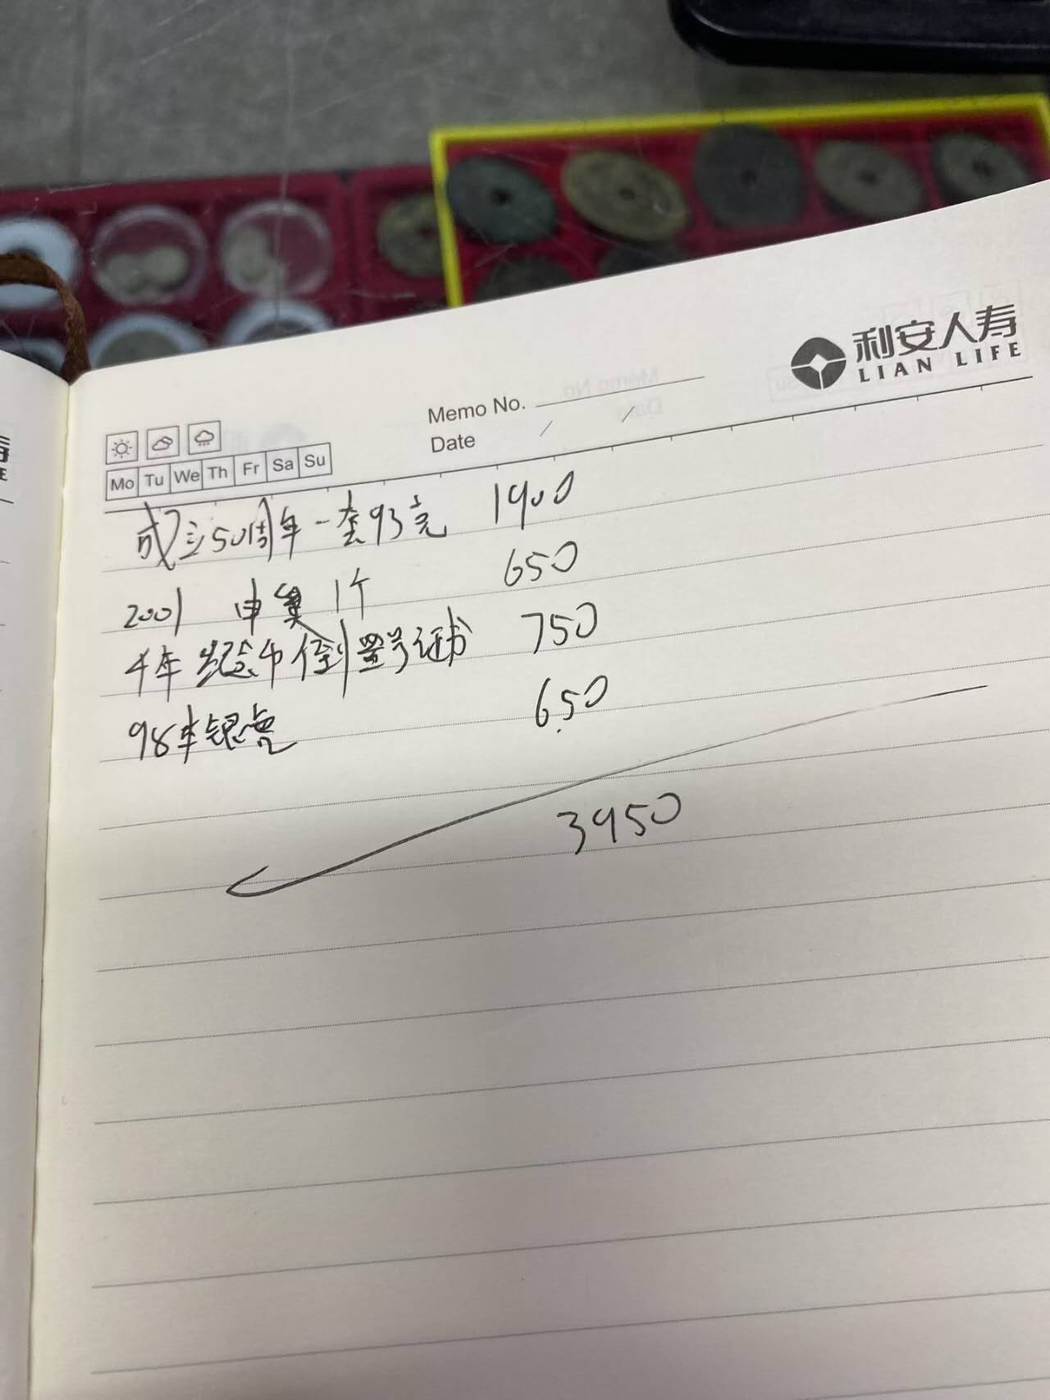 利安人寿
LIAN LIFE
Memo No.
Date / /
Mo Tu We Th Fr Sa Su
成立50周年一套93克 1900
2001 申奥1个 650
千年纪念币倒置号证书 750
98年银虎 650
3950